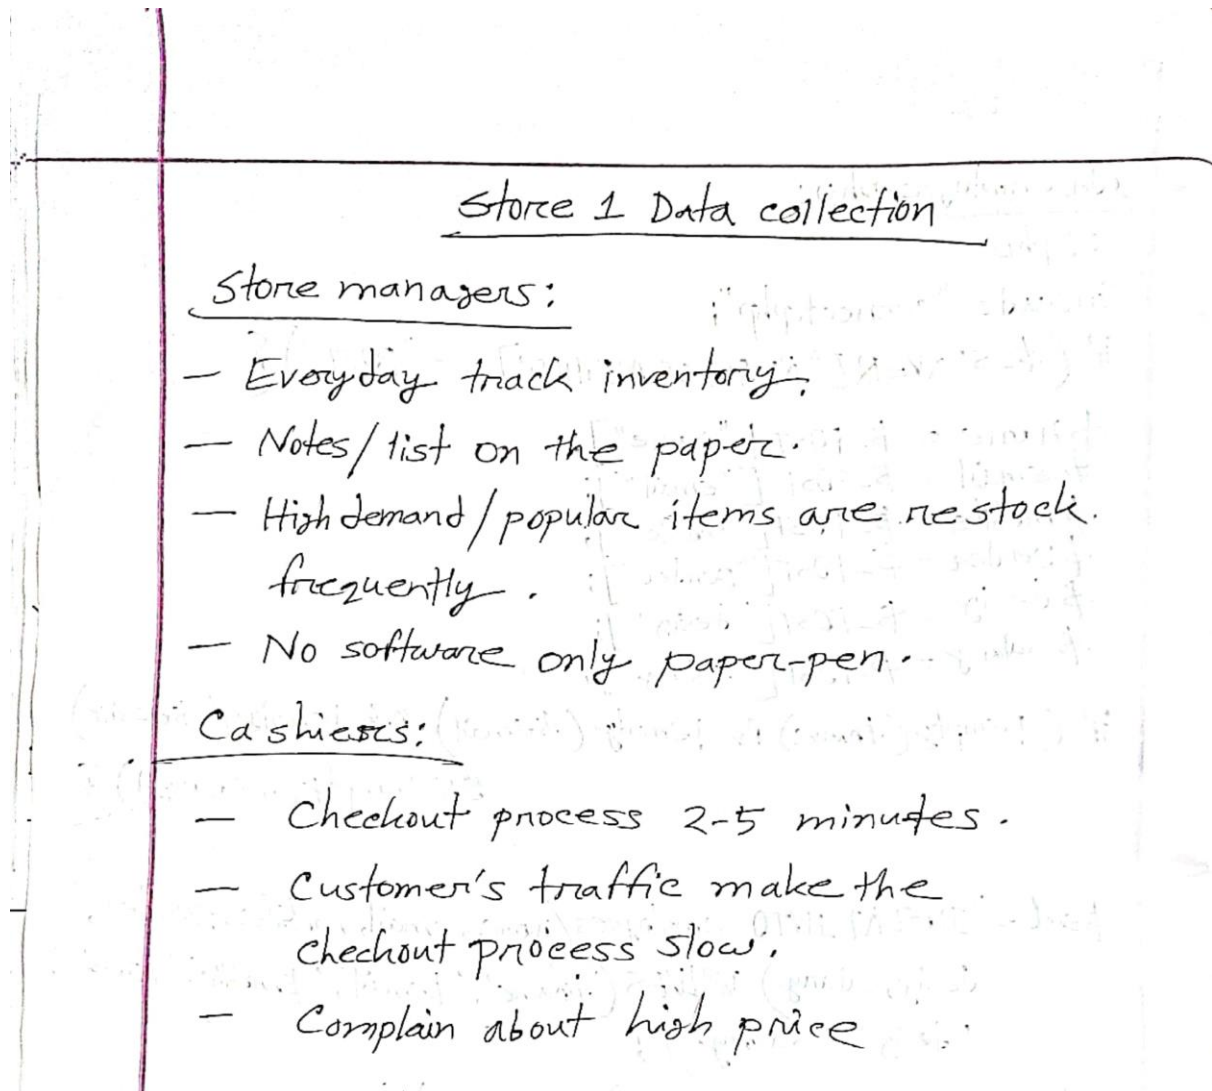 Store 1 Data collection
Store managers:
— Everyday track inventory.
— Notes/list on the paper.
— High demand/popular items are restock
frequently.
— No software only paper-pen.
Cashiers:
— Checkout process 2-5 minutes.
— Customer's traffic make the
checkout process slow.
— Complain about high price